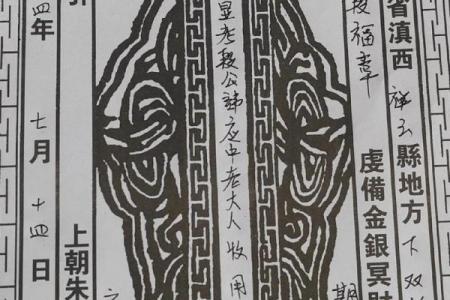 省滇西祥云縣地方下双
段福
虔備金銀冥財
期
显考段公諱应中老大人收用
上朝朱
年七月十四日